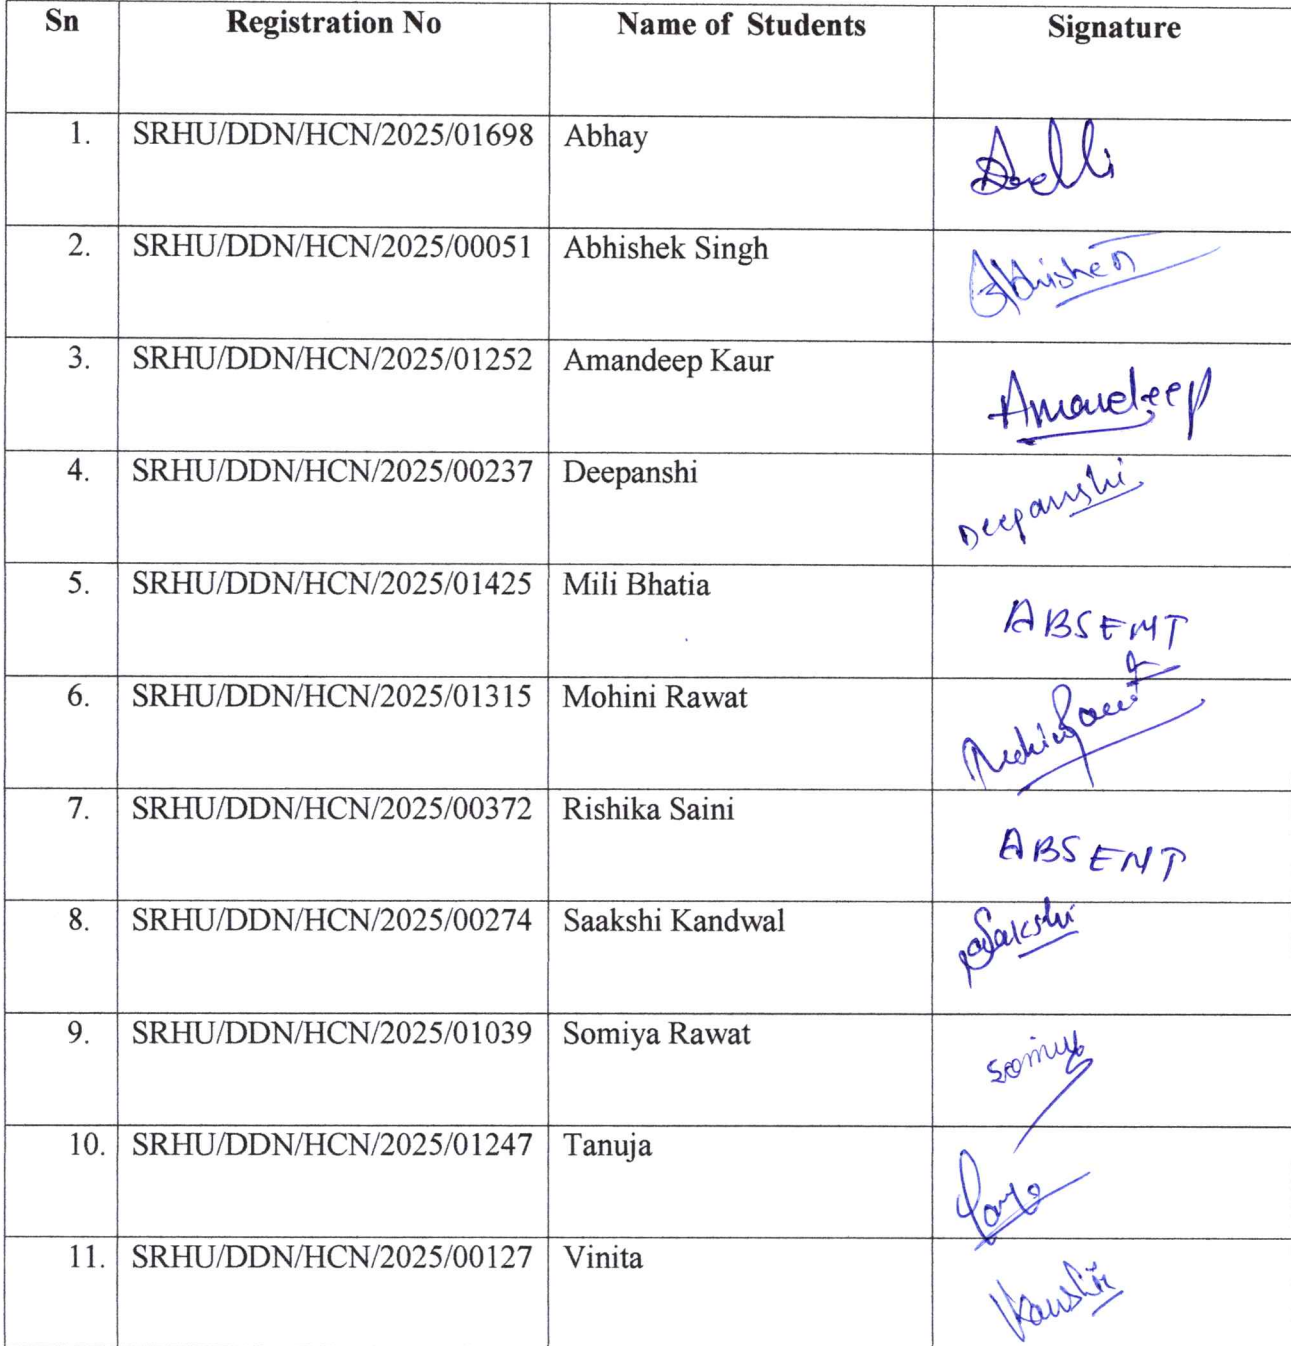 Sn Registration No Name of Students Signature
1. SRHU/DDN/HCN/2025/01698 Abhay
2. SRHU/DDN/HCN/2025/00051 Abhishek Singh Abhishek
3. SRHU/DDN/HCN/2025/01252 Amandeep Kaur Amandeep
4. SRHU/DDN/HCN/2025/00237 Deepanshi Deepanshi
5. SRHU/DDN/HCN/2025/01425 Mili Bhatia ABSENT
6. SRHU/DDN/HCN/2025/01315 Mohini Rawat
7. SRHU/DDN/HCN/2025/00372 Rishika Saini ABSENT
8. SRHU/DDN/HCN/2025/00274 Saakshi Kandwal Sakshi
9. SRHU/DDN/HCN/2025/01039 Somiya Rawat Somiya
10. SRHU/DDN/HCN/2025/01247 Tanuja
11. SRHU/DDN/HCN/2025/00127 Vinita